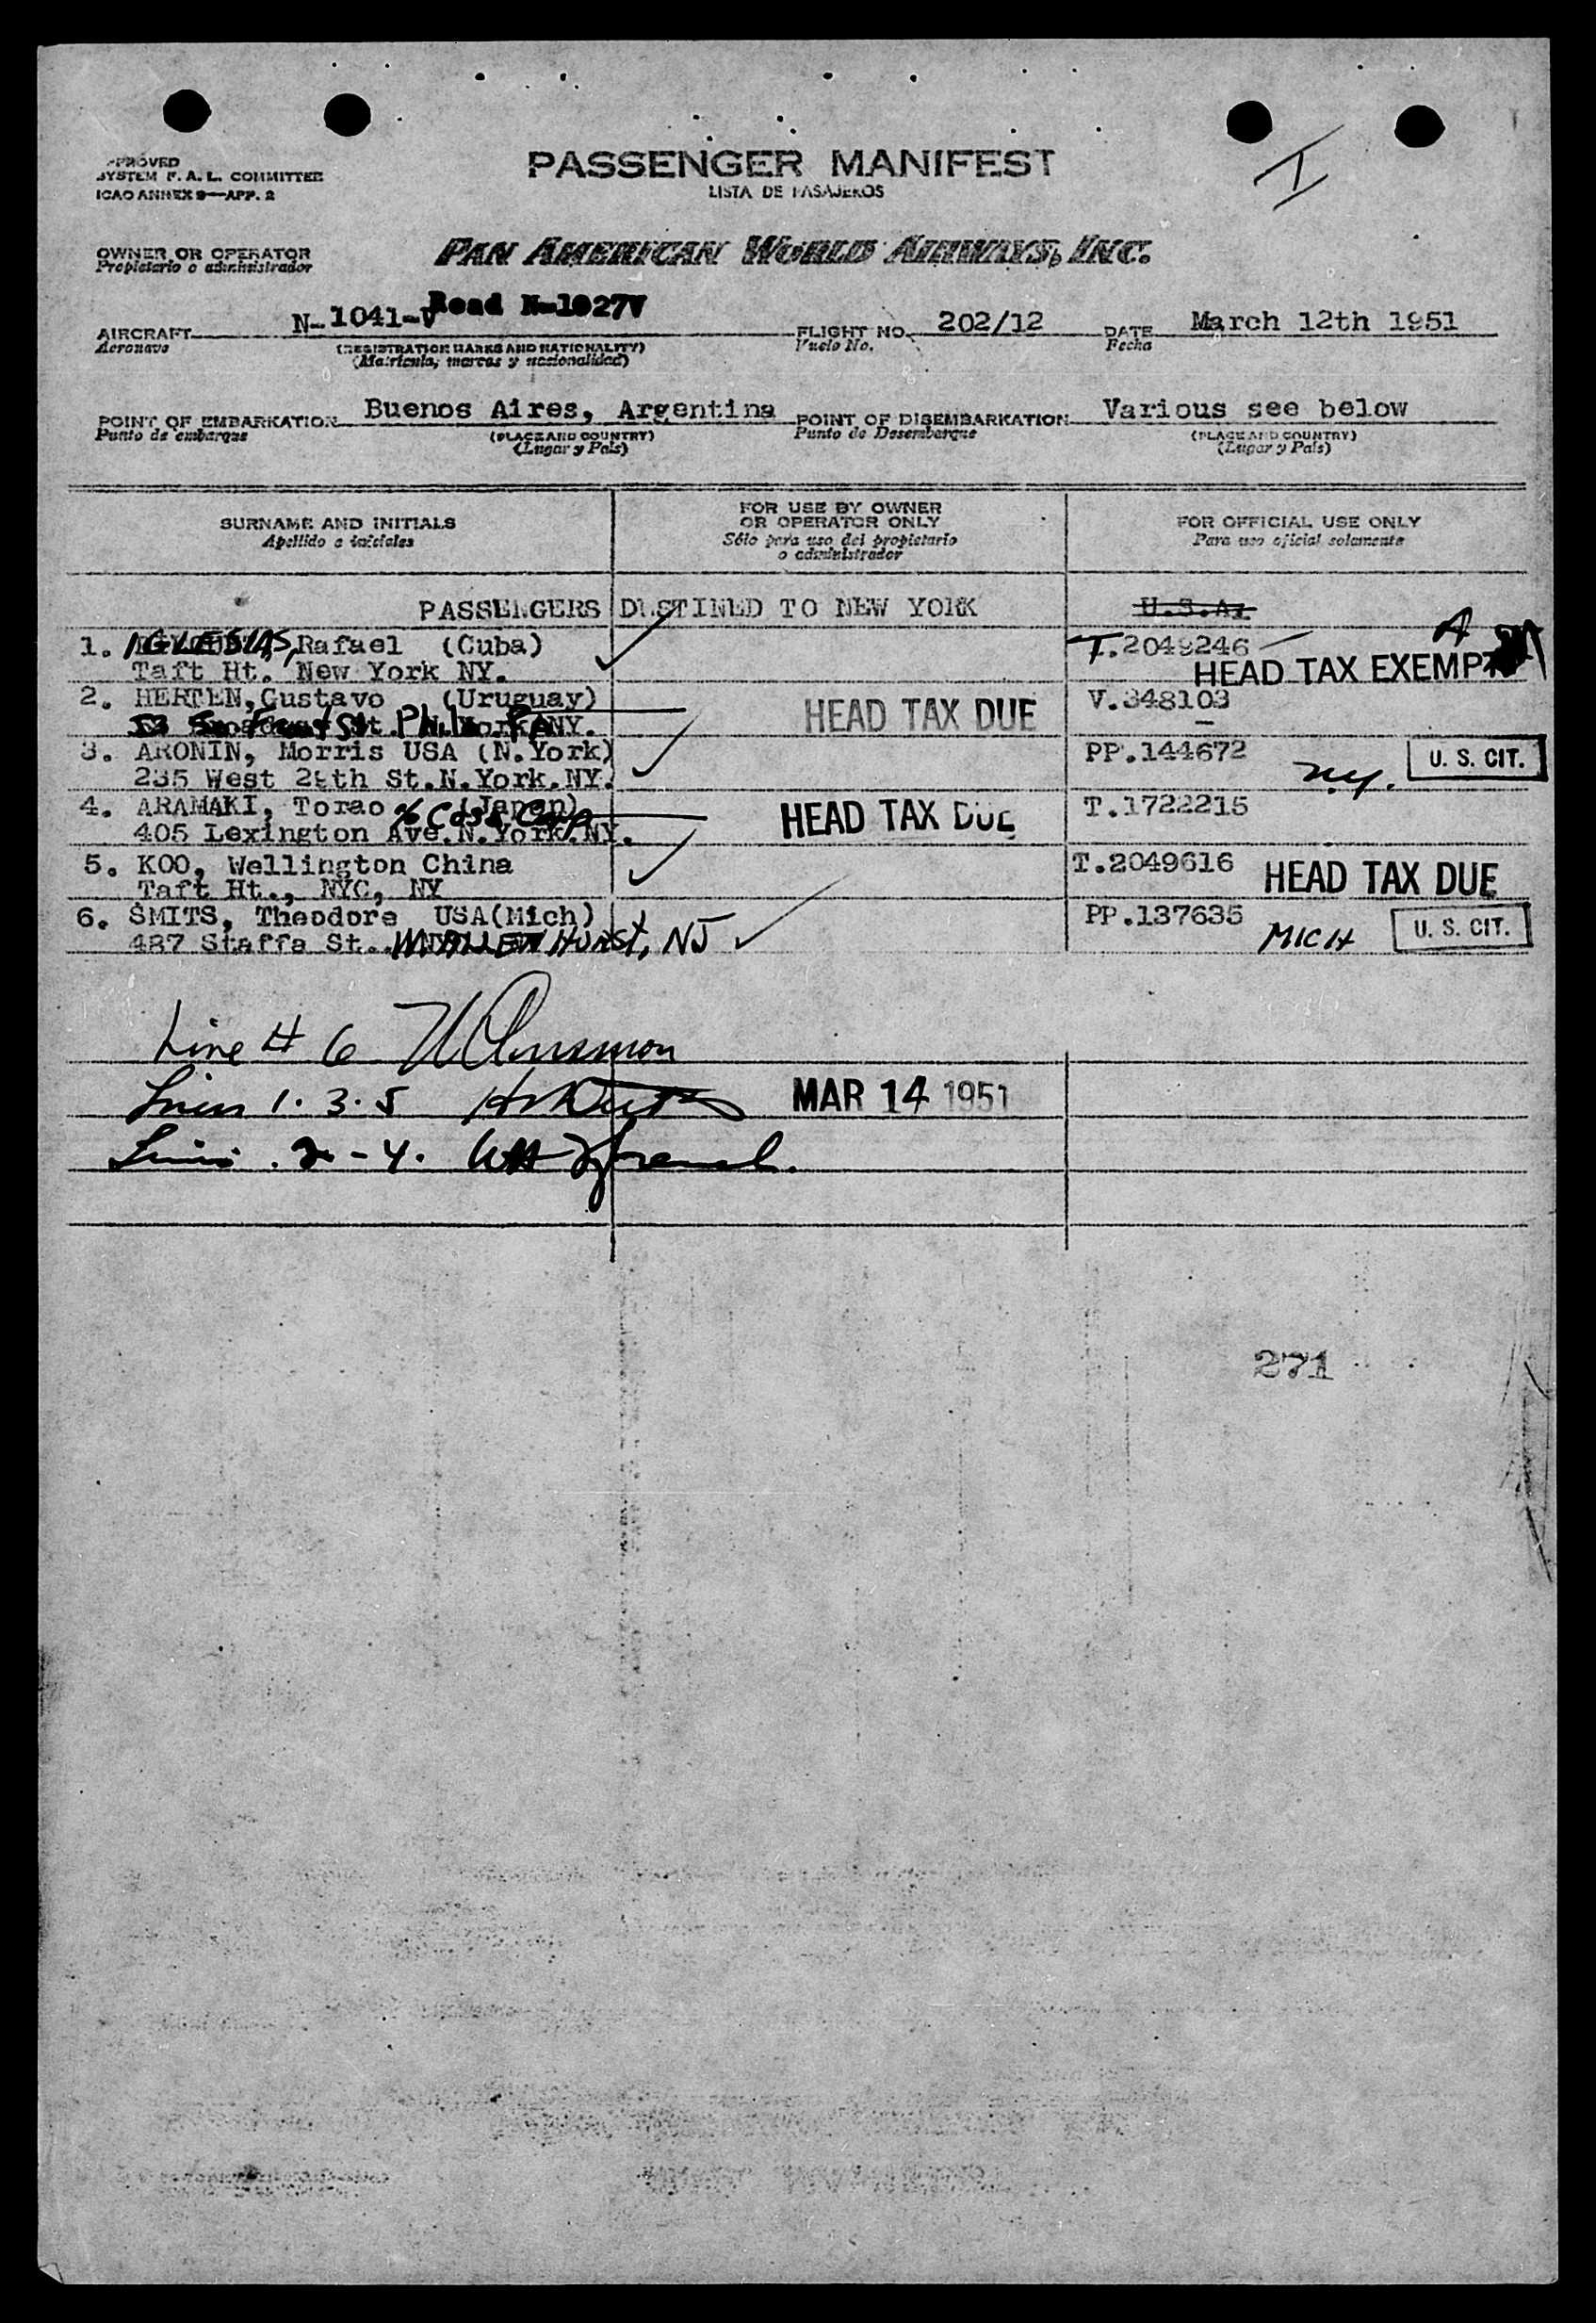 I
APPROVED
SYSTEM F. A. L. COMMITTEE
ICAO ANNEX 9—APP. 2
PASSENGER MANIFEST
LISTA DE PASAJEROS
OWNER OR OPERATOR
Propietario o administrador
PAN AMERICAN WORLD AIRWAYS, INC.
AIRCRAFT N-1041-V Read N-1027V FLIGHT NO. 202/12 DATE March 12th 1951
Aeronave (REGISTRATION MARKS AND NATIONALITY) Vuelo No. Fecha
(Matricula, marcas y nacionalidad)
POINT OF EMBARKATION Buenos Aires, Argentina POINT OF DISEMBARKATION Various see below
Punto de embarque (PLACE AND COUNTRY) Punto de Desembarque (PLACE AND COUNTRY)
(Lugar y País) (Lugar y País)
SURNAME AND INITIALS
Apellido e iniciales
FOR USE BY OWNER
OR OPERATOR ONLY
Sólo para uso del propietario
o administrador
FOR OFFICIAL USE ONLY
Para uso oficial solamente
PASSENGERS DESTINED TO NEW YORK U.S.A.
1. IGLESIAS, Rafael (Cuba) T.2049246 A
Taft Ht. New York NY. HEAD TAX EXEMPT
2. HERTEN, Gustavo (Uruguay) HEAD TAX DUE V.348103
53 So. Front St. Phila. Pa
3. ARONIN, Morris USA (N.York) PP.144672 N.Y. U. S. CIT.
235 West 28th St.N.York.NY.
4. ARAMAKI, Torao (Japan) HEAD TAX DUE T.1722215
405 Lexington Ave.N.York.NY. % Corp
5. KOO, Wellington China T.2049616 HEAD TAX DUE
Taft Ht., NYC, NY
6. SMITS, Theodore USA(Mich) PP.137635 MICH U. S. CIT.
487 Staffa St. HURST, NJ
Line # 6
Lines 1. 3. 5 MAR 14 1951
Lines 2 - 4.
271